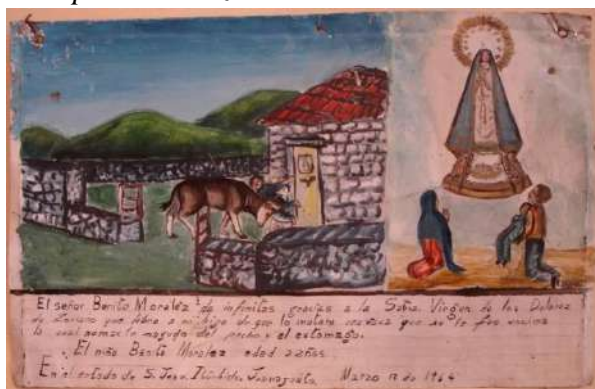 El señor Benito Moralez da infinitas gracias a la Sstma. Virgen de los Dolores
de que libro a mi hijo de que lo matara una vaca que se le fue encima
la cual nomas lo magullo del pecho y el estomago.
El niño Benito Moralez edad 22ños.
En el estado de S. Jose Iturbide, Guanajuato. Marzo 17 de 1964